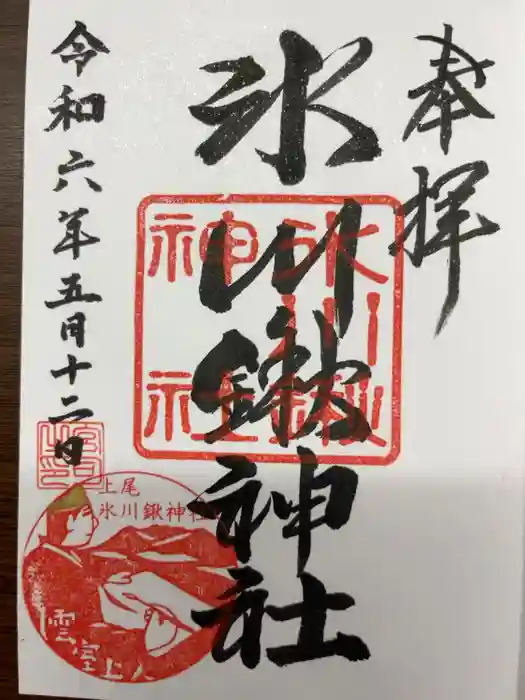 奉拝
氷川鍬神社
氷川鍬神社
令和六年五月十二日
上尾
氷川鍬神社
雲室上人